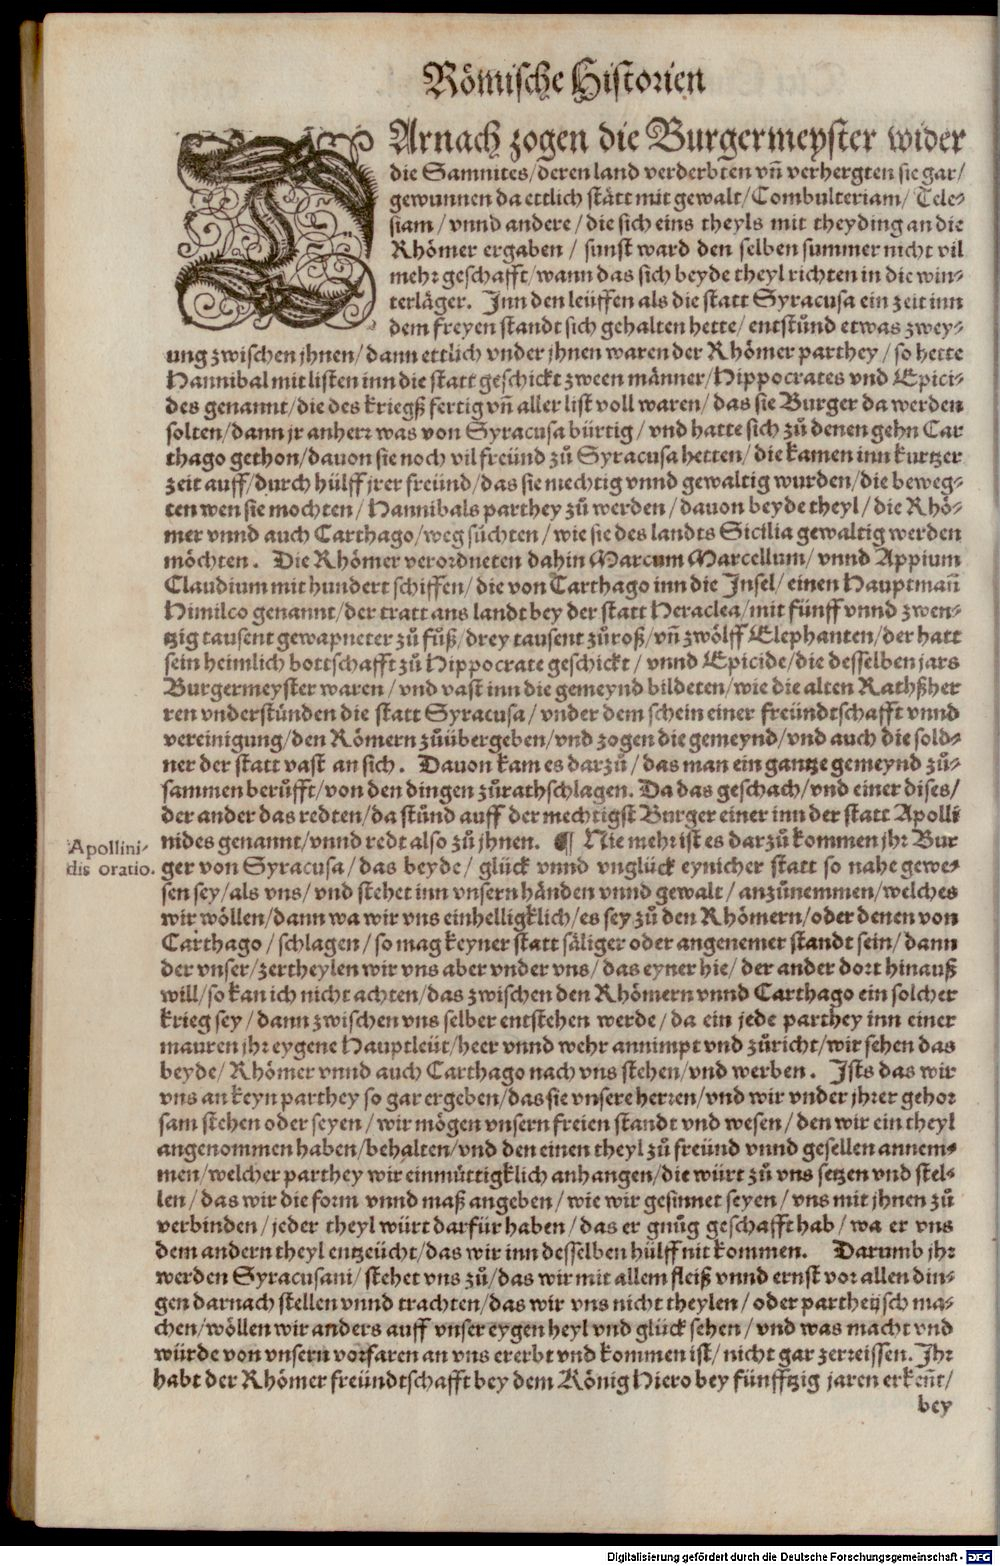 Römische Historien
DArnach zogen die Burgermeyster wider
die Samnites/deren land verderbten vn̄ verhergten sie gar/
gewunnen da ettlich stätt mit gewalt/Combulteriam/Tele-
siam/vnnd andere/die sich eins theyls mit theyding an die
Rhömer ergaben/sunst ward den selben summer nicht vil
mehr geschafft/wann das sich beyde theyl richten in die win-
terläger. Inn den leüffen als die statt Syracusa ein zeit inn
dem freyen standt sich gehalten hette/entstůnd etwas zwey-
ung zwischen jhnen/dann ettlich vnder jhnen waren der Rhömer parthey/so hette
Hannibal mit listen inn die statt geschickt zween männer/Hippocrates vnd Epici-
des genannt/die des kriegß fertig vn̄ aller list voll waren/das sie Burger da werden
solten/dann jr anherr was von Syracusa bürtig/vnd hatte sich zů denen gehn Car
thago gethon/dauon sie noch vil freünd zů Syracusa hetten/die kamen inn kurtzer
zeit auff/durch hülff jrer freünd/das sie mechtig vnnd gewaltig wurden/die beweg-
ten wen sie mochten/Hannibals parthey zů werden/dauon beyde theyl/die Rhö-
mer vnnd auch Carthago/weg sůchten/wie sie des landts Sicilia gewaltig werden
möchten. Die Rhömer verordneten dahin Marcum Marcellum/vnnd Appium
Claudium mit hundert schiffen/die von Carthago inn die Insel/einen Hauptmañ
Himilco genannt/der tratt ans landt bey der statt Heraclea/mit fünff vnnd zwen-
tzig tausent gewapneter zů fůß/drey tausent zůroß/vn̄ zwölff Elephanten/der hatt
sein heimlich bottschafft zů Hippocrate geschickt/vnnd Epicide/die desselben jars
Burgermeyster waren/vnd vast inn die gemeynd bildeten/wie die alten Rathßher
ren vnderstůnden die statt Syracusa/vnder dem schein einer freündtschafft vnnd
vereinigung/den Römern zůübergeben/vnd zogen die gemeynd/vnd auch die sold-
ner der statt vast an sich. Dauon kam es darzů/das man ein gantze gemeynd zů-
sammen berůfft/von den dingen zůrathschlagen. Da das geschach/vnd einer dises/
der ander das redten/da stůnd auff der mechtigst Burger einer inn der statt Apolli
nides genannt/vnnd redt also zů jhnen. ¶ Nie mehr ist es darzů kommen jhr Bur
Apollini-
dis oratio.
ger von Syracusa/das beyde/glück vnnd vnglück eynicher statt so nahe gewe-
sen sey/als vns/vnd stehet inn vnsern händen vnnd gewalt/anzůnemmen/welches
wir wöllen/dann wa wir vns einhelligklich/es sey zů den Rhömern/oder denen von
Carthago/schlagen/so mag keyner statt säliger oder angenemer standt sein/dann
der vnser/zertheylen wir vns aber vnder vns/das eyner hie/der ander dort hinauß
will/so kan ich nicht achten/das zwischen den Rhömern vnnd Carthago ein solcher
krieg sey/dann zwischen vns selber entstehen werde/da ein jede parthey inn einer
mauren jhr eygene Hauptleüt/heer vnnd wehr annimpt vnd zůricht/wir sehen das
beyde/Rhömer vnnd auch Carthago nach vns stehen/vnd werben. Ists das wir
vns an keyn parthey so gar ergeben/das sie vnsere herren/vnd wir vnder jhrer gehor
sam stehen oder seyen/wir mögen vnsern freien standt vnd wesen/den wir ein theyl
angenommen haben/behalten/vnd den einen theyl zů freünd vnnd gesellen annem-
men/welcher parthey wir einmüttigklich anhangen/die würt zů vns setzen vnd stel-
len/das wir die form vnnd maß angeben/wie wir gesinnet seyen/vns mit jhnen zů
verbinden/jeder theyl würt darfür haben/das er gnůg geschafft hab/wa er vns
dem andern theyl entzeücht/das wir inn desselben hülff nit kommen. Darumb jhr
werden Syracusani/stehet vns zů/das wir mit allem fleiß vnnd ernst vor allen din-
gen darnach stellen vnnd trachten/das wir vns nicht theylen/oder partheijsch ma-
chen/wöllen wir anders auff vnser eygen heyl vnd glück sehen/vnd was macht vnd
würde von vnsern vorfaren an vns ererbt vnd kommen ist/nicht gar zerreissen. Ihr
habt der Rhömer freündtschafft bey dem König Hiero bey fünfftzig jaren erkeñt/
bey
Digitalisierung gefördert durch die Deutsche Forschungsgemeinschaft - DFG